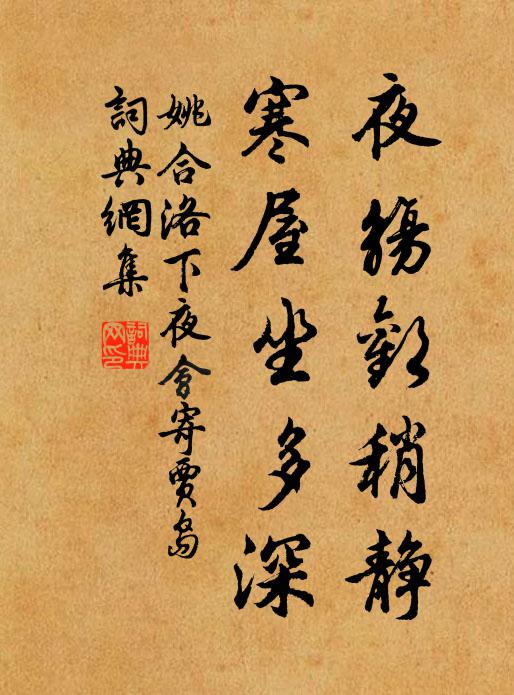 夜觴歡稍靜
寒屋坐多深
姚合洛下夜會寄賈島
詞典網集
詞典网印